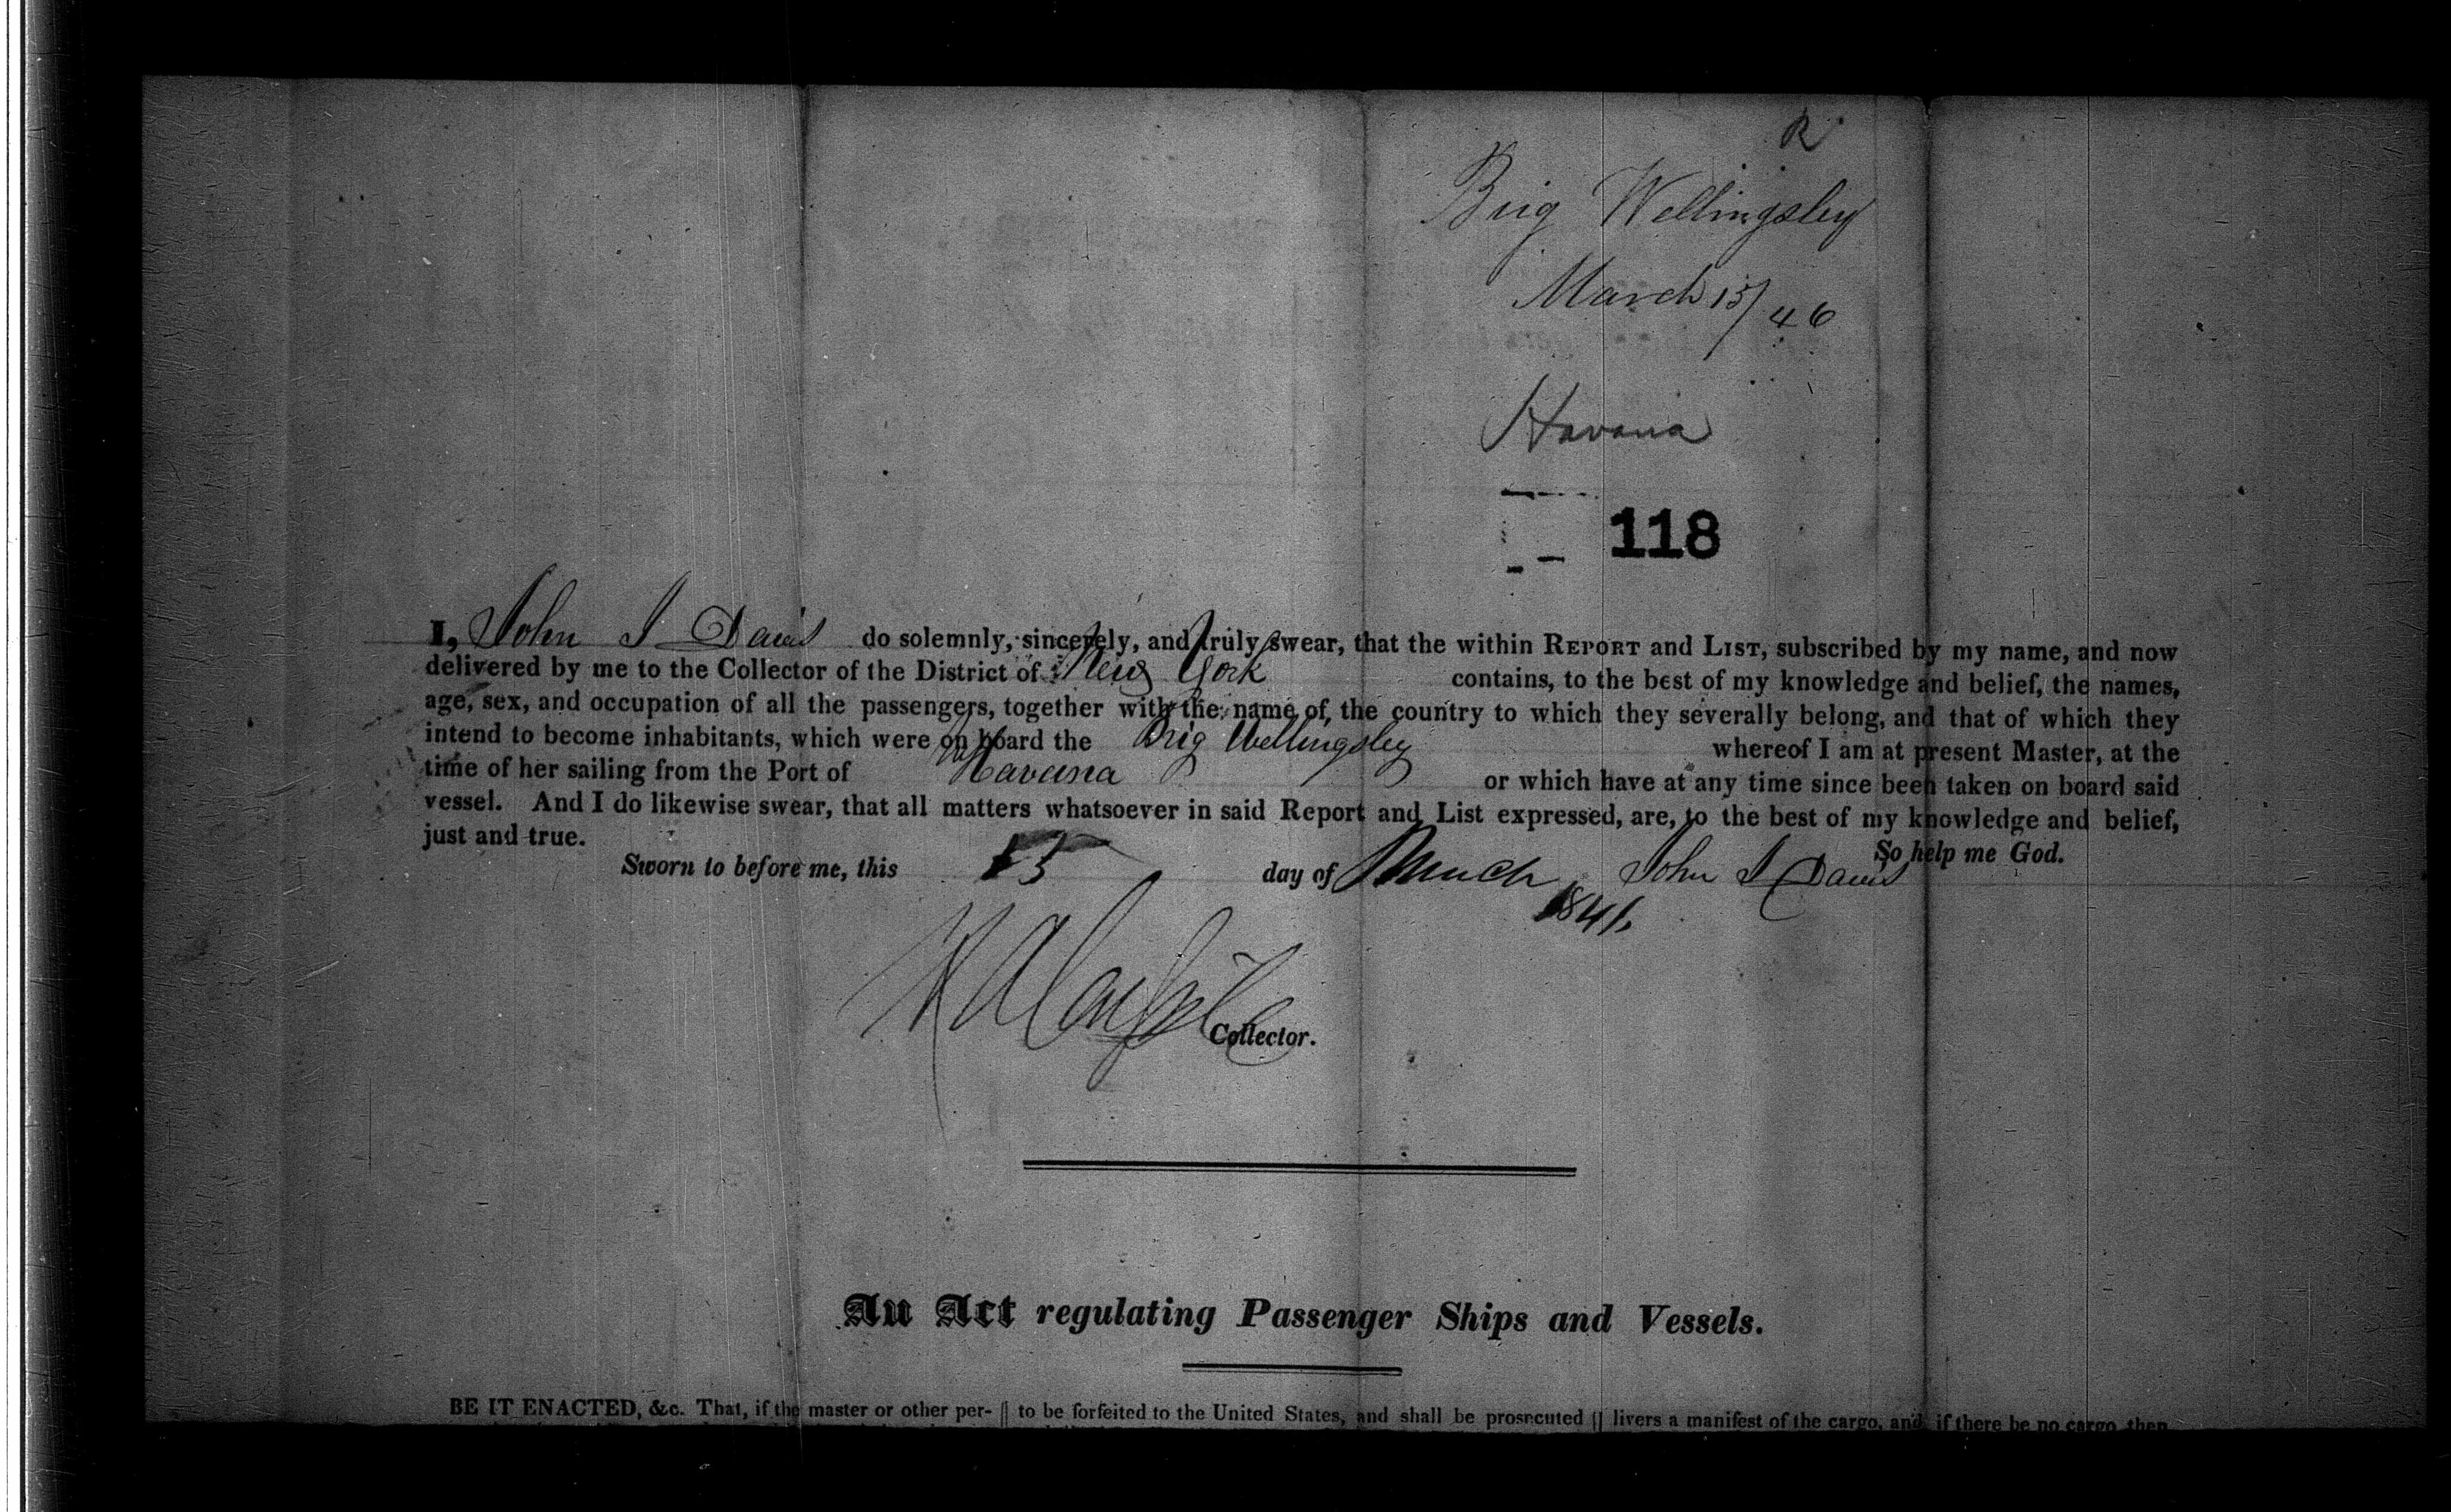 R
Brig Wellingsley
March 15/46
Havana
118
I, John I Davis do solemnly, sincerely, and truly swear, that the within REPORT and LIST, subscribed by my name, and now
delivered by me to the Collector of the District of New York contains, to the best of my knowledge and belief, the names,
age, sex, and occupation of all the passengers, together with the name of the country to which they severally belong, and that of which they
intend to become inhabitants, which were on board the Brig Wellingsley whereof I am at present Master, at the
time of her sailing from the Port of Havana or which have at any time since been taken on board said
vessel. And I do likewise swear, that all matters whatsoever in said Report and List expressed, are, to the best of my knowledge and belief,
just and true.
So help me God.
Sworn to before me, this 15 day of March John I Davis
1846
Collector.
An Act regulating Passenger Ships and Vessels.
BE IT ENACTED, &c. That, if the master or other per- || to be forfeited to the United States, and shall be prosecuted || livers a manifest of the cargo, and, if there be no cargo, then